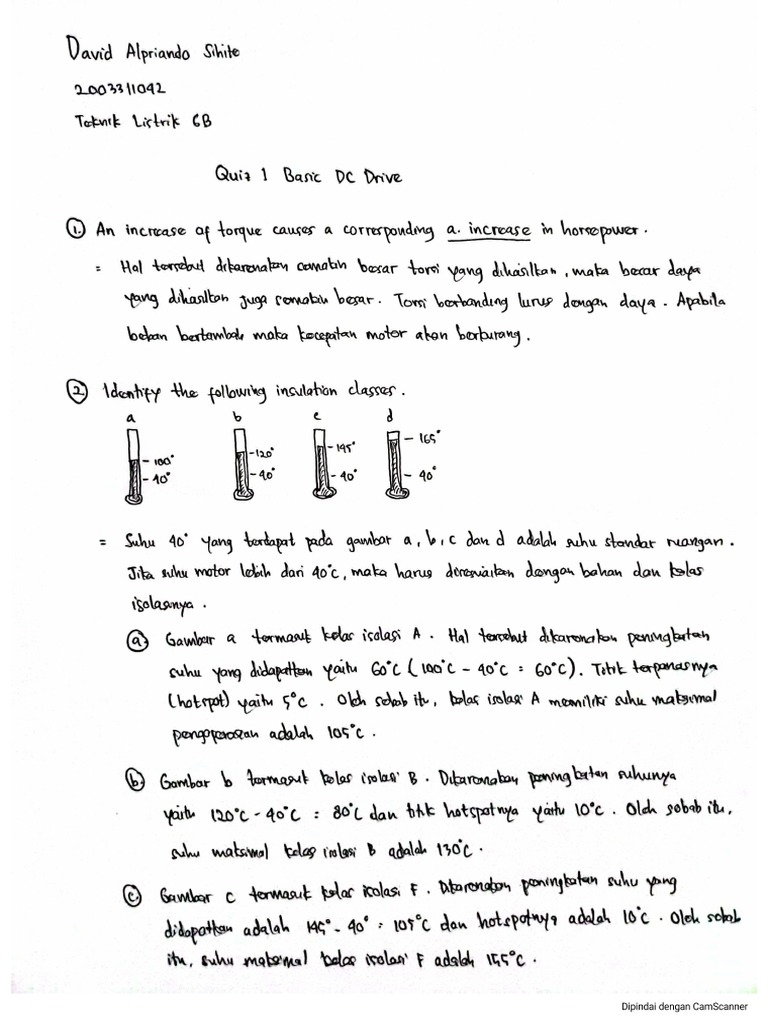 David Alpriando Sihite
2003311042
Teknik Listrik 6B
Quiz 1 Basic DC Drive
1. An increase of torque causes a corresponding a. increase in horsepower.
= Hal tersebut dikarenakan semakin besar torsi yang dihasilkan, maka besar daya
yang dihasilkan juga semakin besar. Torsi berbanding lurus dengan daya. Apabila
beban bertambah maka kecepatan motor akan berkurang.
2. Identify the following insulation classes.
a b c d
- 100° - 120° - 145° - 165°
- 40° - 40° - 40° - 40°
= Suhu 40° yang terdapat pada gambar a, b, c dan d adalah suhu standar ruangan.
Jika suhu motor lebih dari 40°C, maka harus disesuaikan dengan bahan dan kelas
isolasinya.
a Gambar a termasuk kelas isolasi A. Hal tersebut dikarenakan peningkatan
suhu yang didapatkan yaitu 60°C (100°C - 40°C = 60°C). Titik terpanasnya
(hotspot) yaitu 5°C. Oleh sebab itu, kelas isolasi A memiliki suhu maksimal
pengoperasian adalah 105°C.
b Gambar b termasuk kelas isolasi B. Dikarenakan peningkatan suhunya
yaitu 120°C - 40°C = 80°C dan titik hotspotnya yaitu 10°C. Oleh sebab itu,
suhu maksimal kelas isolasi B adalah 130°C.
c Gambar c termasuk kelas isolasi F. Dikarenakan peningkatan suhu yang
didapatkan adalah 145° - 40° = 105°C dan hotspotnya adalah 10°C. Oleh sebab
itu, suhu maksimal kelas isolasi F adalah 155°C.
Dipindai dengan CamScanner